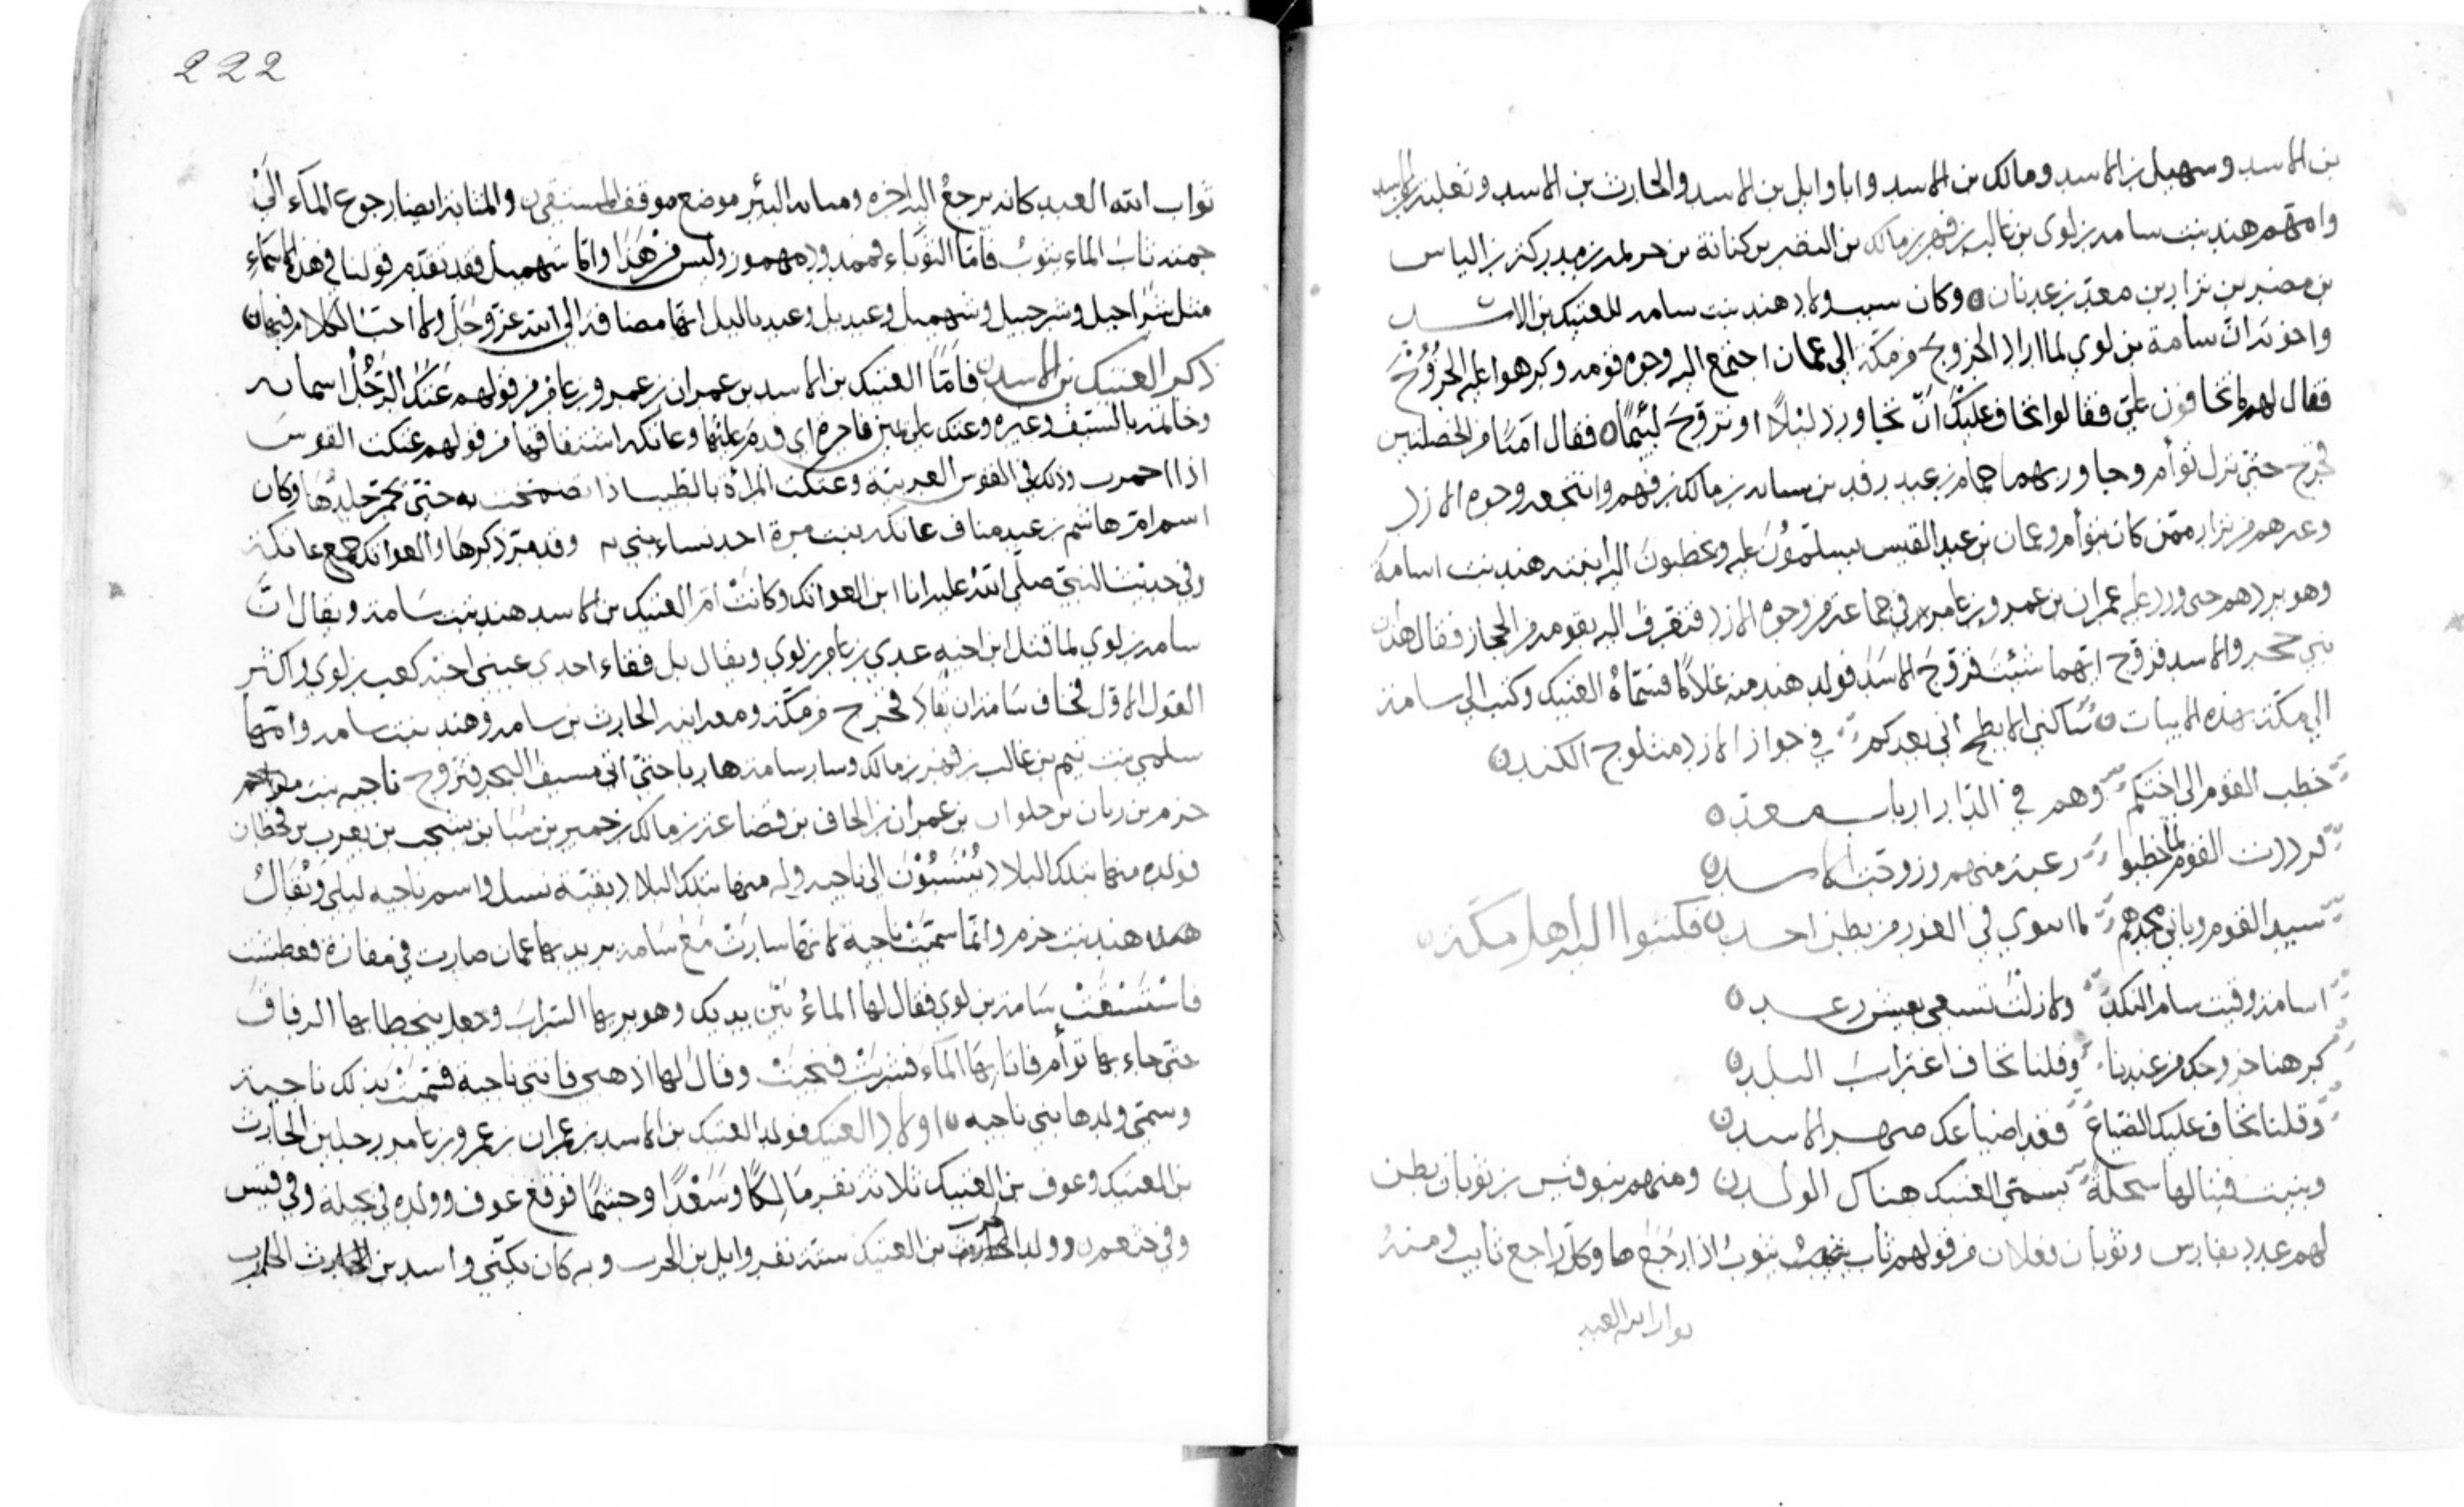 بن الاسد وسهميل بن الاسد ومالك بن الاسد وابا وايل بن الاسد والحارث بن الاسد وثعلبة بن الاسد
وامهم هند بنت سامه بن لوي بن غالب بن فهر بن مالك بن النضر بن كنانة بن خزيمه بن مدركة بن الياس
بن مضر بن نزار بن معد بن عدنان وكان سبب ولاد هند بنت سامه للعتيك بن الاسد
واخوته ان سامة بن لوي لما اراد الخروج من مكة الى عمان اجتمع اليه وجوه قومه وكرهوا عليه الخروج
فقال لهم ما تخافون علي فقالوا نخاف عليك ان تجاور ذليلا او تزوج لئيما فقال امنتا من الخصلتين
فخرج حتى نزل توأم وجاور بها حمام بن عبد رفد بن شبابه بن مالك بن فهم وانتجعه وجوه الازد
وغيرهم من نزار ممن كان بتوأم وعمان من عبد القيس يسلمون عليه ويخطبون اليه ابنته هند بنت اسامة
وهو يردهم حتى ورد عليه عمران بن عمرو بن عامر في جماعة من وجوه الازد فتقرب اليه بقومه من الحجاز فقال هذان
بني حجر والاسد فزوج ايهما شئت فزوج الاسد فولد هند منه غلاما فسماه العتيك وكتب الى سامة
الى مكة بهذه الابيات ساكني الابطح اني بعدكم في جوار الازد مثلوج الكبد
خطب القوم الى اختكم وهم في الدار ارباب معد
فرددت القوم لما خطبوا رغبة منهم وزوجت الاسد
سيد القوم وباني مجدهم لما اسوي في الغور من بطن احد فكتبوا اليه اهل مكة
اسامة وقيت سام النكد ولا زلت تسعى بعيش رغد
كرهنا خروجك من عندنا وقلنا نخاف اغتراب البلد
وقلنا نخاف عليك الضياع فقد اضاعك صهر الاسد
وبنيت فينا لها سخلة يسمى العتيك هناك الولد ومنهم بنو قيس بن ثوبان بطن
لهم عدد بفارس وثوبان فعلان من قولهم ثاب يثوب اذا رجع وكل راجع ثايب ومنه
ثواب الله العبد
222
ثواب الله العبد كانه يرجع اليه اجره ومثابه البئر موضع موقف المستقي والمثابة ايضا رجوع الماء الى
جمته ثاب الماء يثوب فاما الثوباء فممدوده مهموز وليس من هذا واما شهميل فقد تقدم قولنا في هذه الاسماء
مثل شراحيل وشرحبيل وشهميل وعبديل وعبد ياليل انها مضافة الى الله عز وجل ولا احب الكلام فيها
ذكر العتيك بن الاسد فاما العتيك بن الاسد بن عمران بن عمرو بن عامر من قولهم عتك الرجل
وخالته بالسيف وغيره وعتك على يمين فاجرة اي قدم عليها وعاتكه اشتقاقها من قولهم عتكت القوس
اذا احمرت وذلك في القوس العربية وعتكت المراة بالطيب اذا تضمخت به حتى يحمر جلدها وكان
اسم ام هاشم بن عبد مناف عاتكه بنت مرة احد نساء بني وقد مر ذكرها والعواتك جمع عاتكة
وفي حديث النبي صلى الله عليه انا ابن العواتك وكانت ام العتيك بن الاسد هند بنت سامة ويقال ان
سامه بن لوي لما قتل ابن اخيه عدي بن عامر بن لوي ويقال بل فقاء احدى عيني اخيه كعب بن لوي واكثر
القول الاول فخاف سامة ان يقاد فخرج من مكة ومعه ابنه الحارث بن سامه وهند بنت سامه وامهما
سلمى بنت تيم بن غالب بن فهر بن مالك وسار سامة هاربا حتى اتى سيف البحر فتزوج ناجيه بنت
جزم بن ربان بن حلوان بن عمران بن الحاف بن قضاعة بن مالك بن حمير بن سبا بن يشجب بن يعرب بن قحطان
فولده منها بتلك البلاد ينسبون الى ناجيه وله منها بتلك البلاد بقية نسل واسم ناجيه ليلى ويقال
هند بنت جزم وانما سميت ناجية لانها سارت مع سامة يريد بها عمان صارت في مفازة فعطشت
فاستسقت سامة بن لوي فقال لها الماء بين يديك وهو يريها السراب وجعل يتخطا بها الرفاق
حتى جاء بها توأم فاتا بها الماء فشربت فنجت وقال لها اذهبي فانتي ناجية فسميت بذلك ناجية
وسمي ولدها بني ناجيه اولاد العتيك فولد العتيك بن الاسد بن عمران بن عمرو بن عامر رجلين الحارث
بن العتيك وعوف بن العتيك ثلاثة نفر مالكا وسعدا وجشما فوقع عوف وولده في بجيلة وفي قيس
وفي خثعم وولد الحرث بن العتيك ستة نفر وايل بن الحرب وبه كان يكنى واسد بن الحارث